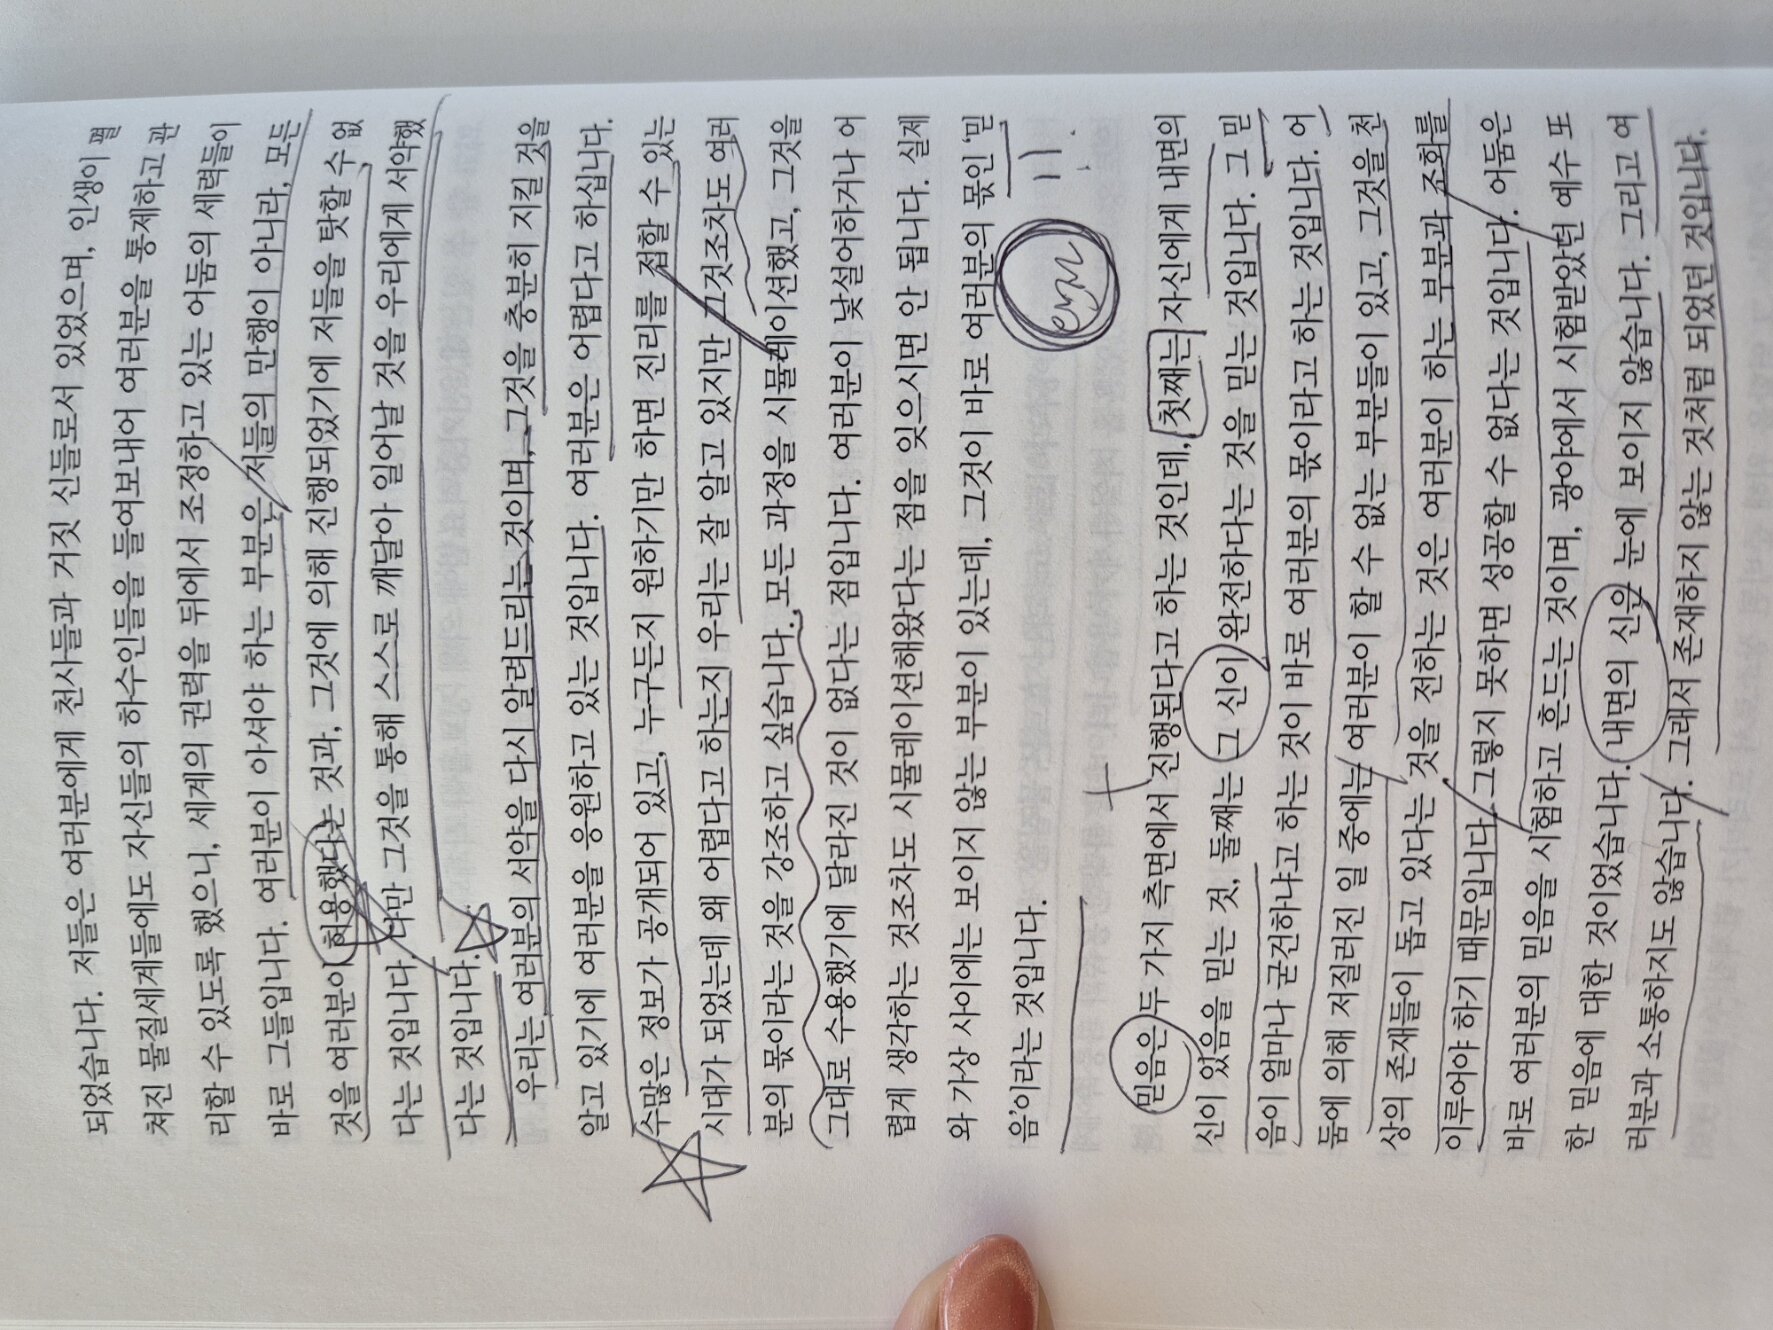 되었습니다. 저들은 여러분에게 천사들과 거짓 신들로서 있었으며, 인생이 펼
쳐진 물질세계들에도 자신들의 하수인들을 들여보내어 여러분을 통제하고 관
리할 수 있도록 했으니, 세계의 권력을 뒤에서 조정하고 있는 어둠의 세력들이
바로 그들입니다. 여러분이 아셔야 하는 부분은 저들의 만행이 아니라, 모든
것을 여러분이 허용했다는 것과, 그것에 의해 진행되었기에 저들을 탓할 수 없
다는 것입니다. 다만 그것을 통해 스스로 깨달아 일어날 것을 우리에게 서약했
다는 것입니다.
우리는 여러분의 서약을 다시 알려드리는 것이며, 그것을 충분히 지킬 것을
알고 있기에 여러분을 응원하고 있는 것입니다. 여러분은 어렵다고 하십니다.
수많은 정보가 공개되어 있고, 누구든지 원하기만 하면 진리를 접할 수 있는
시대가 되었는데 왜 어렵다고 하는지 우리는 잘 알고 있지만 그것조차도 여러
분의 몫이라는 것을 강조하고 싶습니다. 모든 과정을 시뮬레이션했고, 그것을
그대로 수용했기에 달라진 것이 없다는 점입니다. 여러분이 낯설어하거나 어
렵게 생각하는 것조차도 시뮬레이션해왔다는 점을 잊으시면 안 됩니다. 실제
와 가상 사이에는 보이지 않는 부분이 있는데, 그것이 바로 여러분의 몫인 '믿
음'이라는 것입니다.
믿음은 두 가지 측면에서 진행된다고 하는 것인데, 첫째는 자신에게 내면의
신이 있음을 믿는 것, 둘째는 그 신이 완전하다는 것을 믿는 것입니다. 그 믿
음이 얼마나 굳건하냐고 하는 것이 바로 여러분의 몫이라고 하는 것입니다. 어
둠에 의해 저질러진 일 중에는 여러분이 할 수 없는 부분들이 있고, 그것을 천
상의 존재들이 돕고 있다는 것을 전하는 것은 여러분이 하는 부분과 조화를
이루어야 하기 때문입니다. 그렇지 못하면 성공할 수 없다는 것입니다. 어둠은
바로 여러분의 믿음을 시험하고 흔드는 것이며, 광야에서 시험받았던 예수 또
한 믿음에 대한 것이었습니다. 내면의 신은 눈에 보이지 않습니다. 그리고 여
러분과 소통하지도 않습니다. 그래서 존재하지 않는 것처럼 되었던 것입니다.